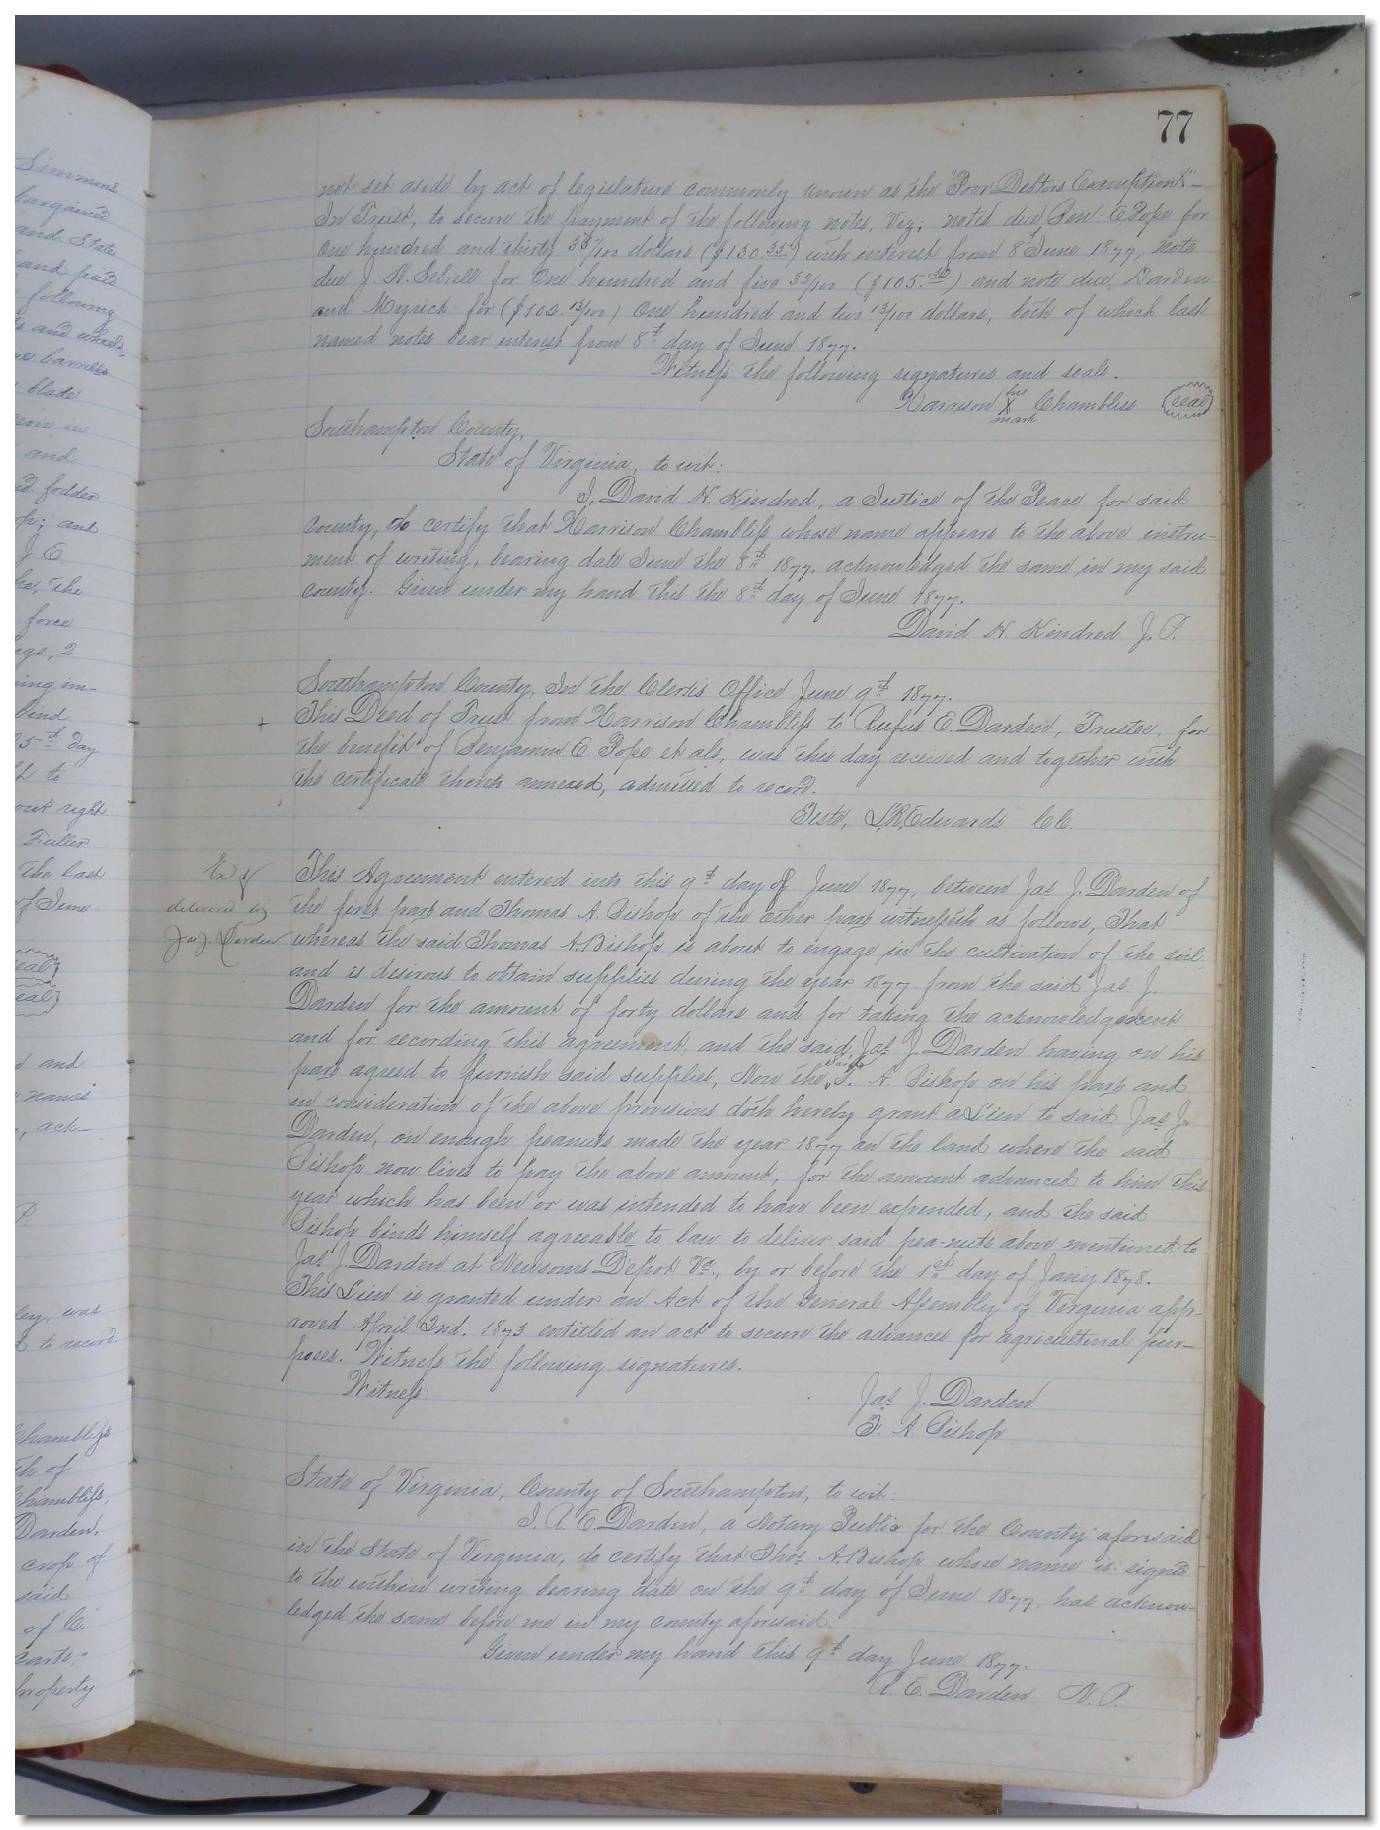 77
not set aside by act of legislature commonly known as the "Poor Debtors Exemption"–
In Trust, to secure the payment of the following notes, Viz; noted due Benj. E. Pope for
One hundred and thirty 35/100 dollars ($130.35) with interest from 8th June 1877, note
due J. N. Sebrell for One hundred and five 32/100 ($105.) and note due Darden
and Myrick for ($102.13/100) One hundred and two 13/100 dollars, both of which last
named notes bear interest from 8th day of June 1877.
Witness the following signatures and seals.
Harrison his X mark Chambliss (seal)
Southampton County,
State of Virginia, to wit:
I, David N. Kindred, a Justice of the Peace for said
county, do certify that Harrison Chambliss whose name appears to the above instru-
ment of writing, bearing date June the 8th 1877, acknowledged the same in my said
county. Given under my hand this the 8th day of June 1877.
David N. Kindred J. P.
Southampton County, In the Clerks Office June 9th 1877.
This Deed of Trust from Harrison Chambliss to Rufus E. Darden, Trustee, for
the benefit of Benjamin E Pope et als, was this day received and together with
the certificate thereto annexed, admitted to record.
Teste, L.R. Edwards C.C.
Ex'd &
delivered to
Jas J. Darden
This Agreement entered into this 9th day of June 1877, between Jas J. Darden of
the first part and Thomas A. Bishop of the other part witnesseth as follows, That
whereas the said Thomas A. Bishop is about to engage in the cultivation of the soil,
and is desirous to obtain supplies during the year 1877 from the said Jas. J.
Darden for the amount of forty dollars and for taking the acknowledgement
and for recording this agreement, and the said Jas J. Darden having on his
part agreed to furnish said supplies, Now the said T. A. Bishop on his part and
in consideration of the above provisions doth hereby grant a Lien to said Jas J.
Darden, on enough peanuts made the year 1877 on the land where the said
Bishop now lives to pay the above amount, for the amount advanced to him this
year which has been or was intended to have been expended, and the said
Bishop binds himself agreeable to law to deliver said pea-nuts above mentioned to
Jas J. Darden at Newsoms Depot Va., by or before the 1st day of Jany 1878.
This Lien is granted under an Act of the General Assembly of Virginia app-
roved April 2nd. 1873 entitled an act to secure the advances for agricultural pur-
poses. Witness the following signatures.
Witness
Jas J. Darden
T. A. Bishop
State of Virginia, County of Southampton, to wit:
I, R. E. Darden, a Notary Public for the County aforesaid
in the State of Virginia, do certify that Thos A. Bishop whose name is signed
to the within writing bearing date on the 9th day of June 1877, has acknow-
ledged the same before me in my county aforesaid.
Given under my hand this 9th day June 1877.
R. E. Darden N. P.